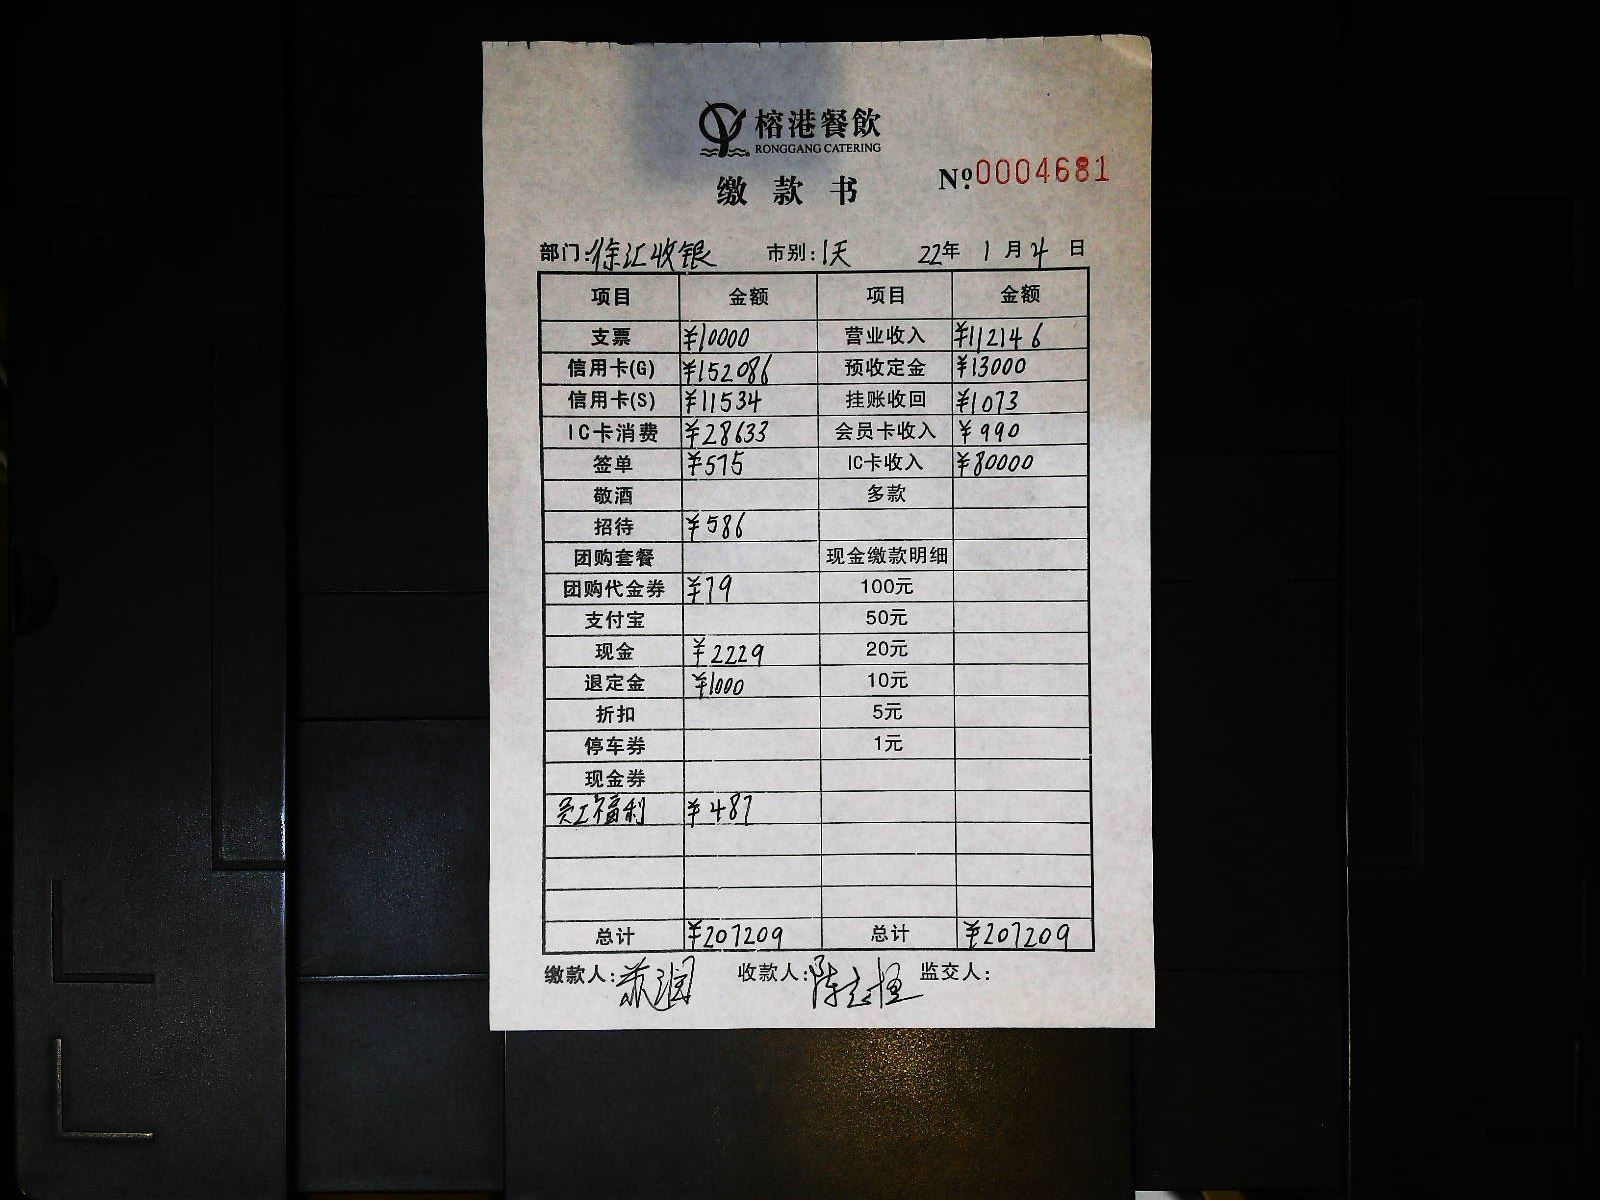 榕港餐飲
RONGGANG CATERING
缴款书
Nº.0004681
部门:徐汇收银 市别:1天 22年1月4日
项目 金额 项目 金额
支票 ¥10000 营业收入 ¥112146
信用卡(G) ¥152086 预收定金 ¥13000
信用卡(S) ¥11534 挂账收回 ¥1073
IC卡消费 ¥28633 会员卡收入 ¥990
签单 ¥575 IC卡收入 ¥80000
敬酒 多款
招待 ¥586
团购套餐 现金缴款明细
团购代金券 ¥79 100元
支付宝 50元
现金 ¥2229 20元
退定金 ¥1000 10元
折扣 5元
停车券 1元
现金券
员工福利 ¥487
总计 ¥207209 总计 ¥207209
缴款人:苏润 收款人:陈 监交人: